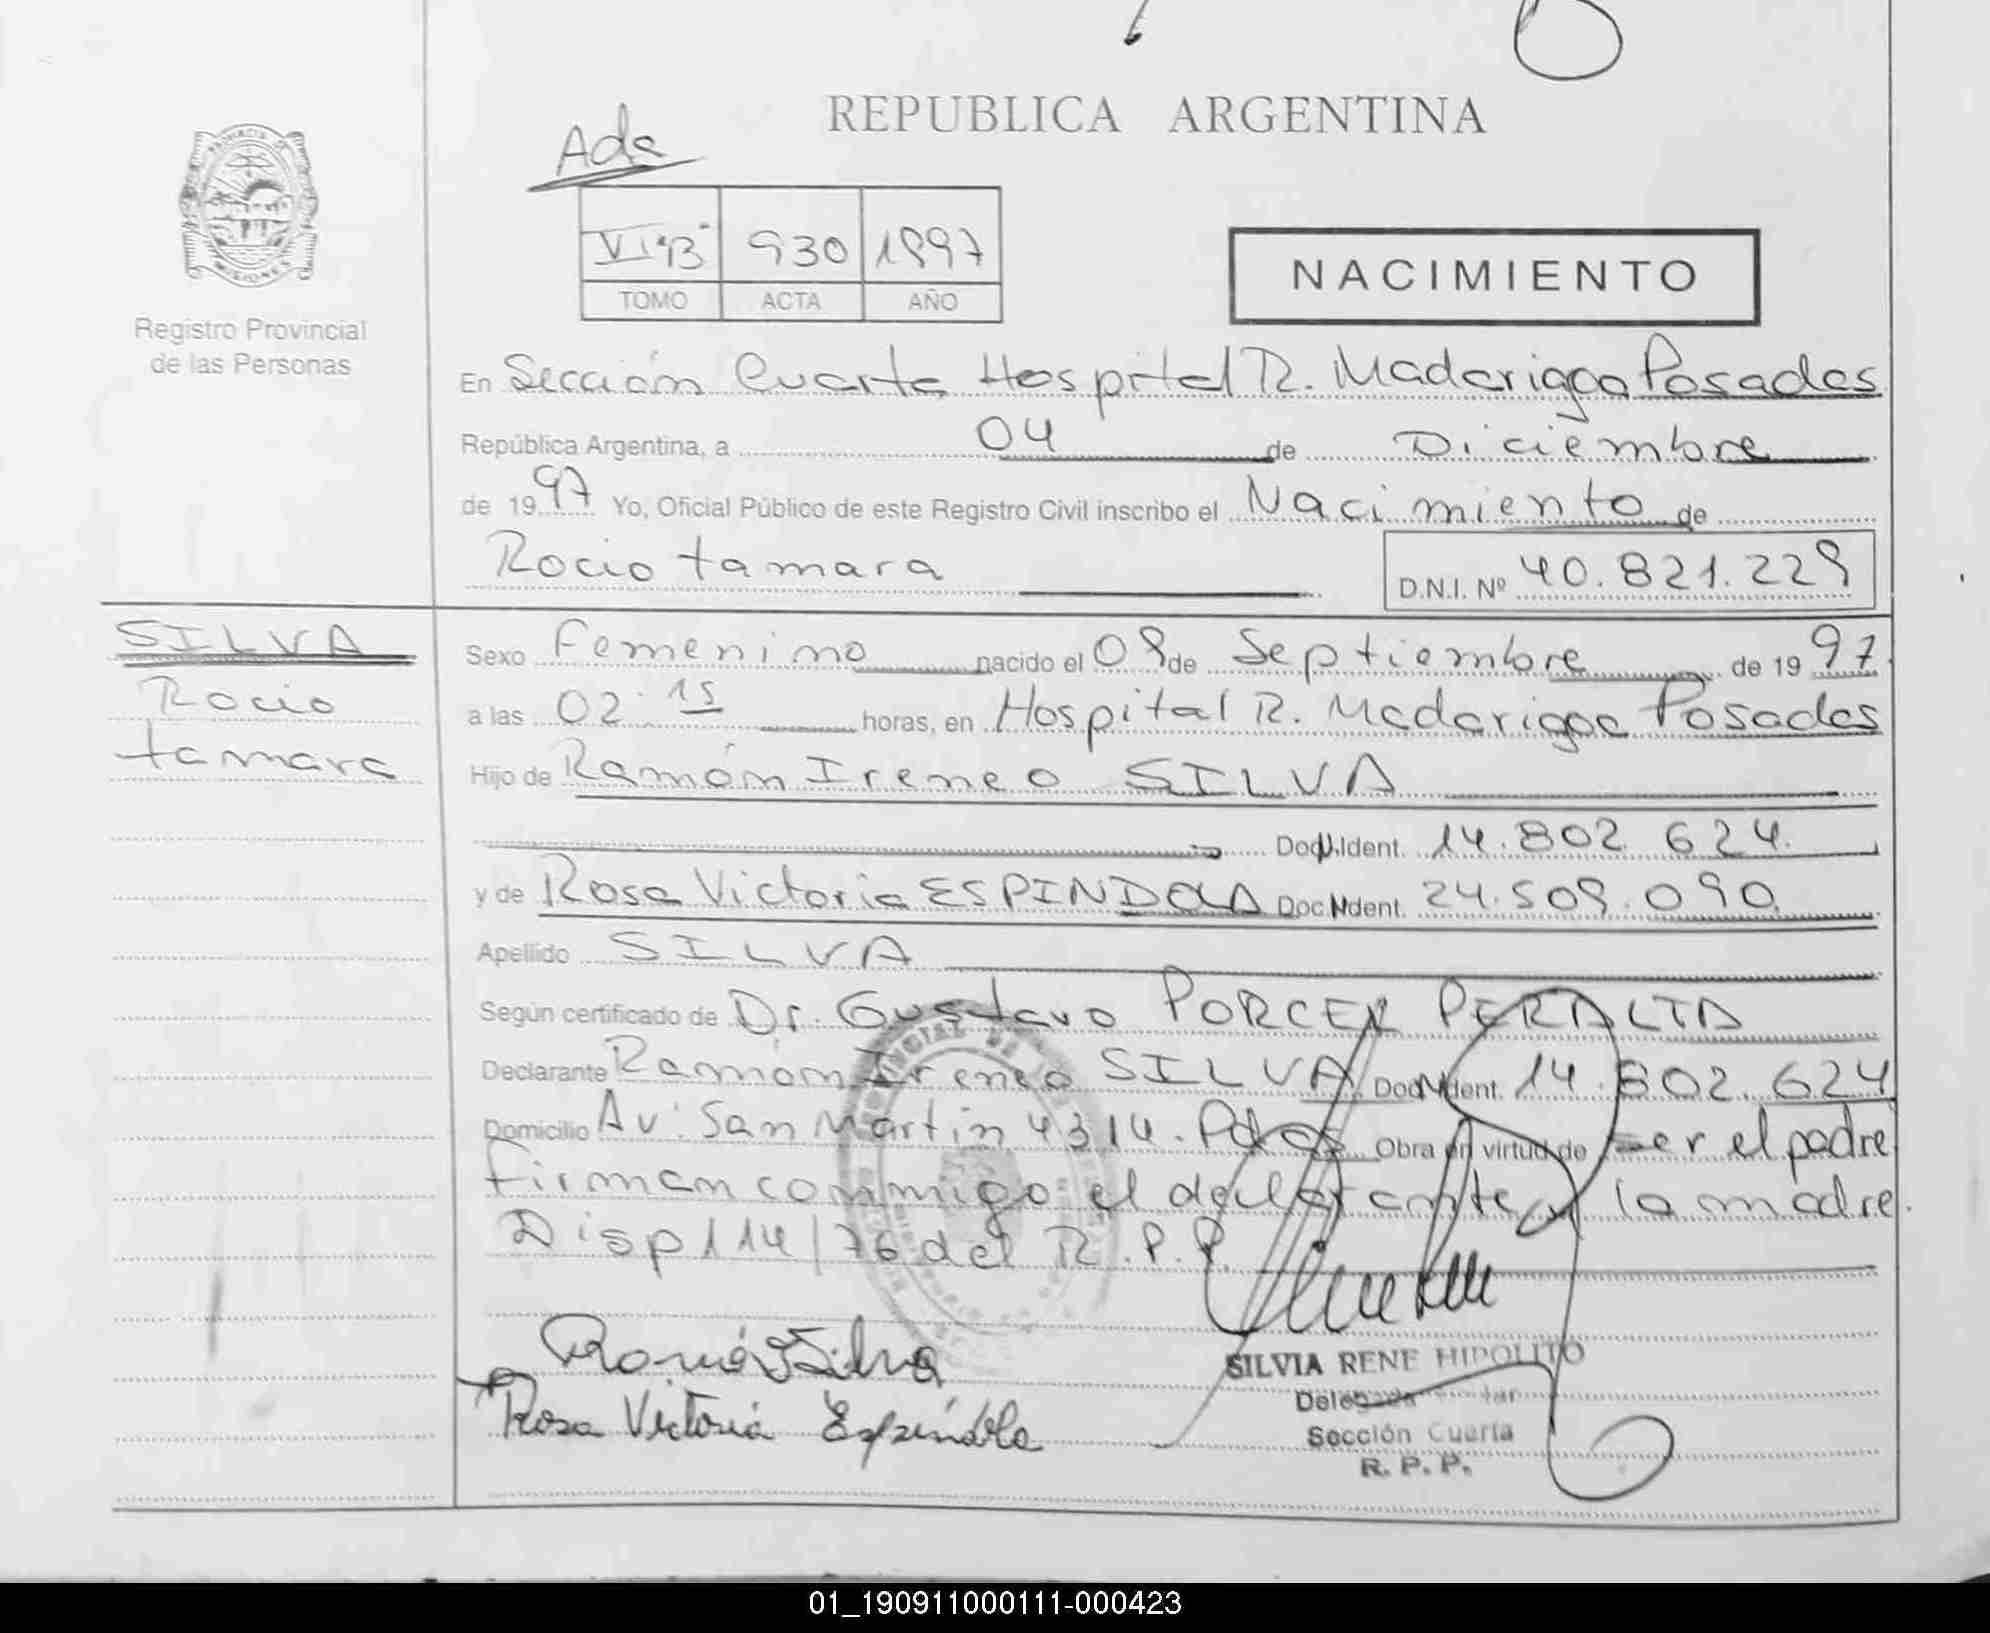 REPUBLICA ARGENTINA
Ada
930 1997
TOMO ACTA AÑO
NACIMIENTO
PROVINCIA DE MISIONES
Registro Provincial
de las Personas
En Sección Cuarta Hospital R. Madariaga Posadas
República Argentina, a 04 de Diciembre
de 1997 Yo, Oficial Público de este Registro Civil inscribo el Nacimiento de
Rocio tamara D.N.I. Nº 40.821.229
SILVA
Rocio
tamara
Sexo Femenino nacido el 09 de Septiembre de 1997
a las 02:15 horas, en Hospital R. Madariaga Posadas
Hijo de Ramón Ireneo SILVA
Doc. Ident. 14.802.624.
y de Rosa Victoria ESPINDOLA Doc. Ident. 24.509.090.
Apellido SILVA
Según certificado de Dr. Gustavo PORCEL PERALTA
Declarante Ramón Ireneo SILVA Doc. Ident. 14.802.624
Domicilio Av. San Martin 4314. Pdas Obra en virtud de ser el padre
firman conmigo el declarante y la madre.
Disp 114/76 del R.P.P.
Ramón Silva
Rosa Victoria Espíndola
SILVIA RENE HIPOLITO
Delegada Titular
Sección Cuarta
R. P. P.
01_190911000111-000423